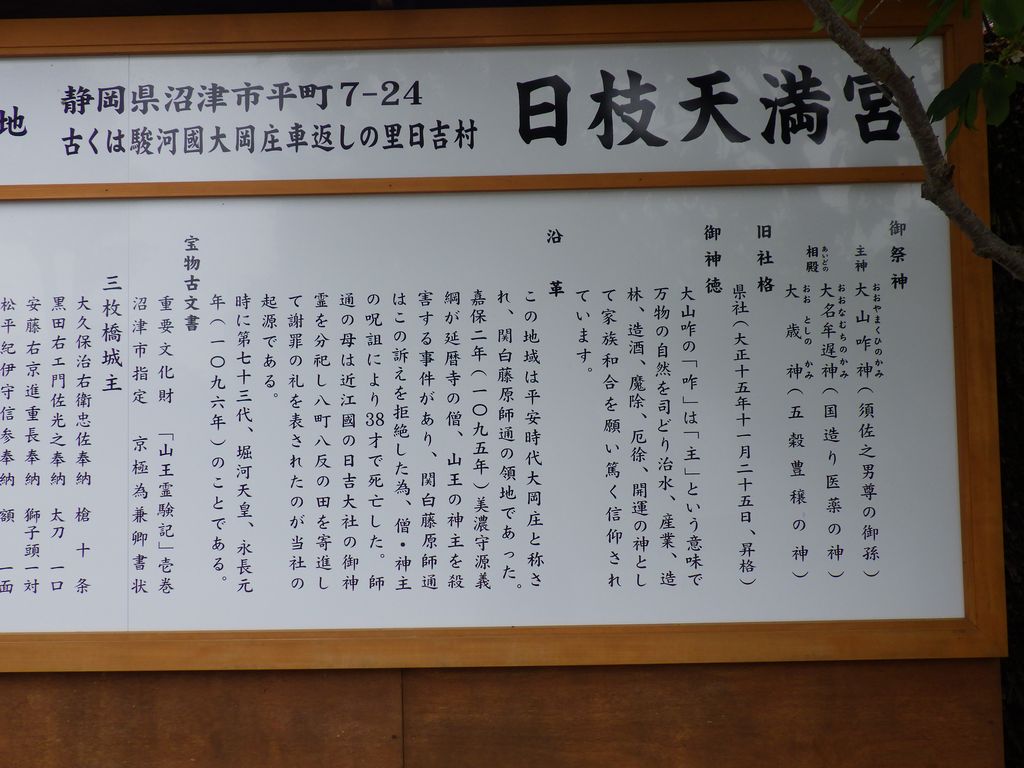 日枝天満宮
地
静岡県沼津市平町7-24
古くは駿河國大岡庄車返しの里日吉村
御祭神
主神 大山咋神(須佐之男尊の御孫)
おおやまくひのかみ
相殿 大名牟遅神(国造り医薬の神)
あいどの おおなむちのかみ
大歳神(五穀豊穣の神)
おおとしのかみ
旧社格
県社(大正十五年十一月二十五日、昇格)
御神徳
大山咋の「咋」は「主」という意味で
万物の自然を司どり治水、産業、造
林、造酒、魔除、厄徐、開運の神とし
て家族和合を願い篤く信仰され
ています。
沿革
この地域は平安時代大岡庄と称さ
れ、関白藤原師通の領地であった。
嘉保二年(一〇九五年)美濃守源義
綱が延暦寺の僧、山王の神主を殺
害する事件があり、関白藤原師通
はこの訴えを拒絶した為、僧・神主
の呪詛により38才で死亡した。師
通の母は近江國の日吉大社の御神
霊を分祀し八町八反の田を寄進し
て謝罪の礼を表されたのが当社の
起源である。
時に第七十三代、堀河天皇、永長元
年(一〇九六年)のことである。
宝物古文書
重要文化財 「山王霊験記」壱巻
沼津市指定 京極為兼卿書状
三枚橋城主
大久保治右衛忠佐奉納 槍 十条
黒田右エ門佐光之奉納 太刀 一口
安藤右京進重長奉納 獅子頭一対
松平紀伊守信参奉納 額 一面